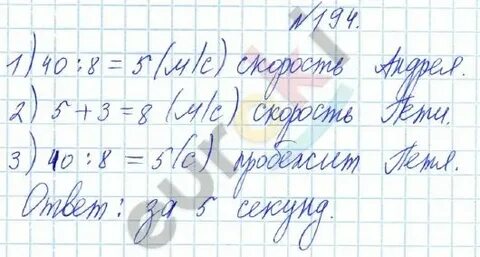 №194.
1) 40 : 8 = 5 (м/с) скорость Андрея.
2) 5 + 3 = 8 (м/с) скорость Пети.
3) 40 : 8 = 5 (с) пробежит Петя.
Ответ: за 5 секунд.
euroki